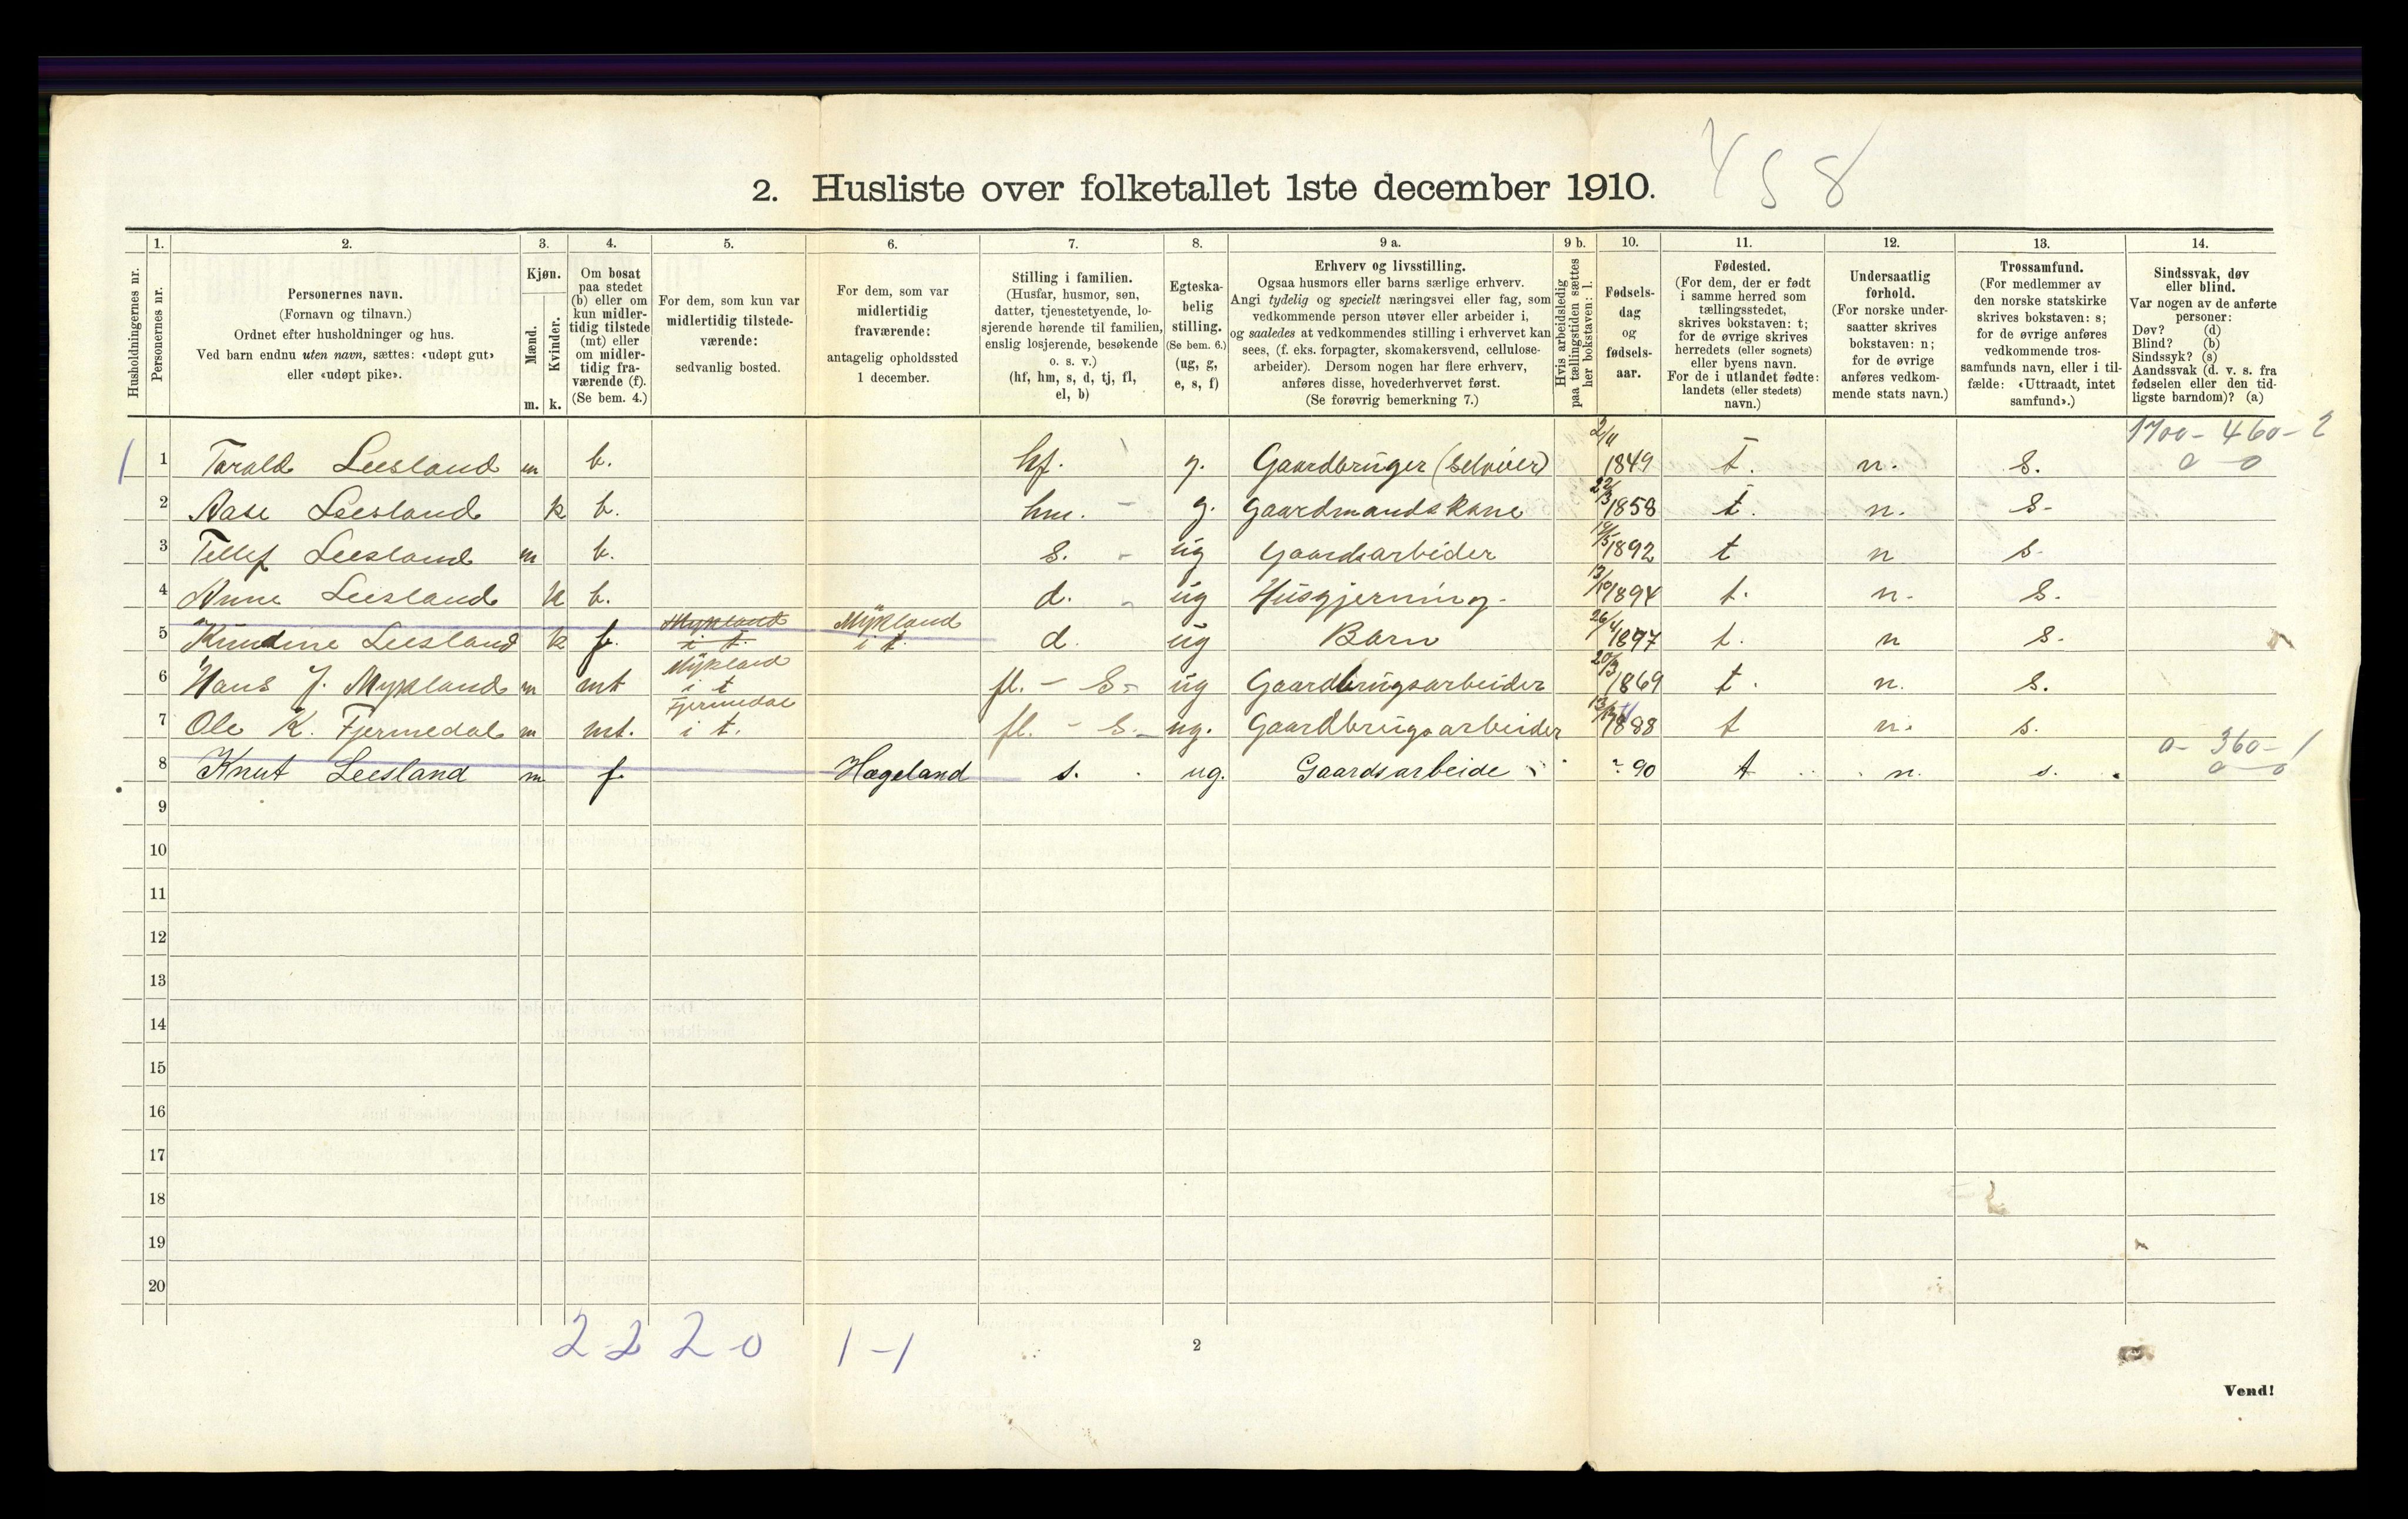 458
2. Husliste over folketallet 1ste december 1910.
Husholdningernes nr.
1.
Personernes nr.
2.
Personernes navn.
(Fornavn og tilnavn.)
Ordnet efter husholdninger og hus.
Ved barn endnu uten navn, sættes: «udøpt gut»
eller «udøpt pike».
3.
Kjøn.
Mænd.
Kvinder.
m. k.
4.
Om bosat
paa stedet
(b) eller om
kun midler-
tidig tilstede
(mt) eller
om midler-
tidig fra-
værende (f).
(Se bem. 4.)
5.
For dem, som kun var
midlertidig tilstede-
værende:
sedvanlig bosted.
6.
For dem, som var
midlertidig
fraværende:
antagelig opholdssted
1 december.
7.
Stilling i familien.
(Husfar, husmor, søn,
datter, tjenestetyende, lo-
sjerende hørende til familien,
enslig losjerende, besøkende
o. s. v.)
(hf, hm, s, d, tj, fl,
el, b)
8.
Egteska-
belig
stilling.
(Se bem. 6.)
(ug, g,
e, s, f)
9 a.
Erhverv og livsstilling.
Ogsaa husmors eller barns særlige erhverv.
Angi tydelig og specielt næringsvei eller fag, som
vedkommende person utøver eller arbeider i,
og saaledes at vedkommendes stilling i erhvervet kan
sees, (f. eks. forpagter, skomakersvend, cellulose-
arbeider). Dersom nogen har flere erhverv,
anføres disse, hovederhvervet først.
(Se forøvrig bemerkning 7.)
9 b.
Hvis arbeidsledig
paa tællingstiden sættes
her bokstaven: l.
10.
Fødsels-
dag
og
fødsels-
aar.
11.
Fødested.
(For dem, der er født
i samme herred som
tællingsstedet,
skrives bokstaven: t;
for de øvrige skrives
herredets (eller sognets)
eller byens navn.
For de i utlandet fødte:
landets (eller stedets)
navn.)
12.
Undersaatlig
forhold.
(For norske under-
saatter skrives
bokstaven: n;
for de øvrige
anføres vedkom-
mende stats navn.)
13.
Trossamfund.
(For medlemmer av
den norske statskirke
skrives bokstaven: s;
for de øvrige anføres
vedkommende tros-
samfunds navn, eller i til-
fælde: «Uttraadt, intet
samfund».)
14.
Sindssvak, døv
eller blind.
Var nogen av de anførte
personer:
Døv? (d)
Blind? (b)
Sindssyk? (s)
Aandssvak (d. v. s. fra
fødselen eller den tid-
ligste barndom)? (a)
1700 - 460 - 2
1 1 Tarald Leesland m b. hf. g. Gaardbruger (selveier) 2/11 1849 t. n. s. 0 - 0
2 Aase Leesland k b. hm. - g. Gaardmandskone 22/3 1858 t. n. s.
3 Tellef Leesland m b. s. - ug Gaardsarbeider 1892 t n s.
4 Anne Leesland k b. d. - ug Husgjerning. 13/10 1894 t. n. s.
5 Kundine Leesland k f. Mykland i t. Mykland i t. d. ug Barn 26/4 1897 t. n s.
6 Hans J. Mykland m mt Mykland i t fl. - S - ug Gaardbrugsarbeider 20/3 1869 t. n. s.
7 Ole K. Fjermedal m mt. Fjermedal i t. fl. - S. - ug. Gaardbrugsarbeider 1888 t n. s.
0 - 360 - 1
8 Knut Leesland m f Hægeland s. ug. Gaardsarbeide 90 t n. s. 0 - 0
9
10
11
12
13
14
15
16
17
18
19
20
2-2 2-0 1-1
2
Vend!